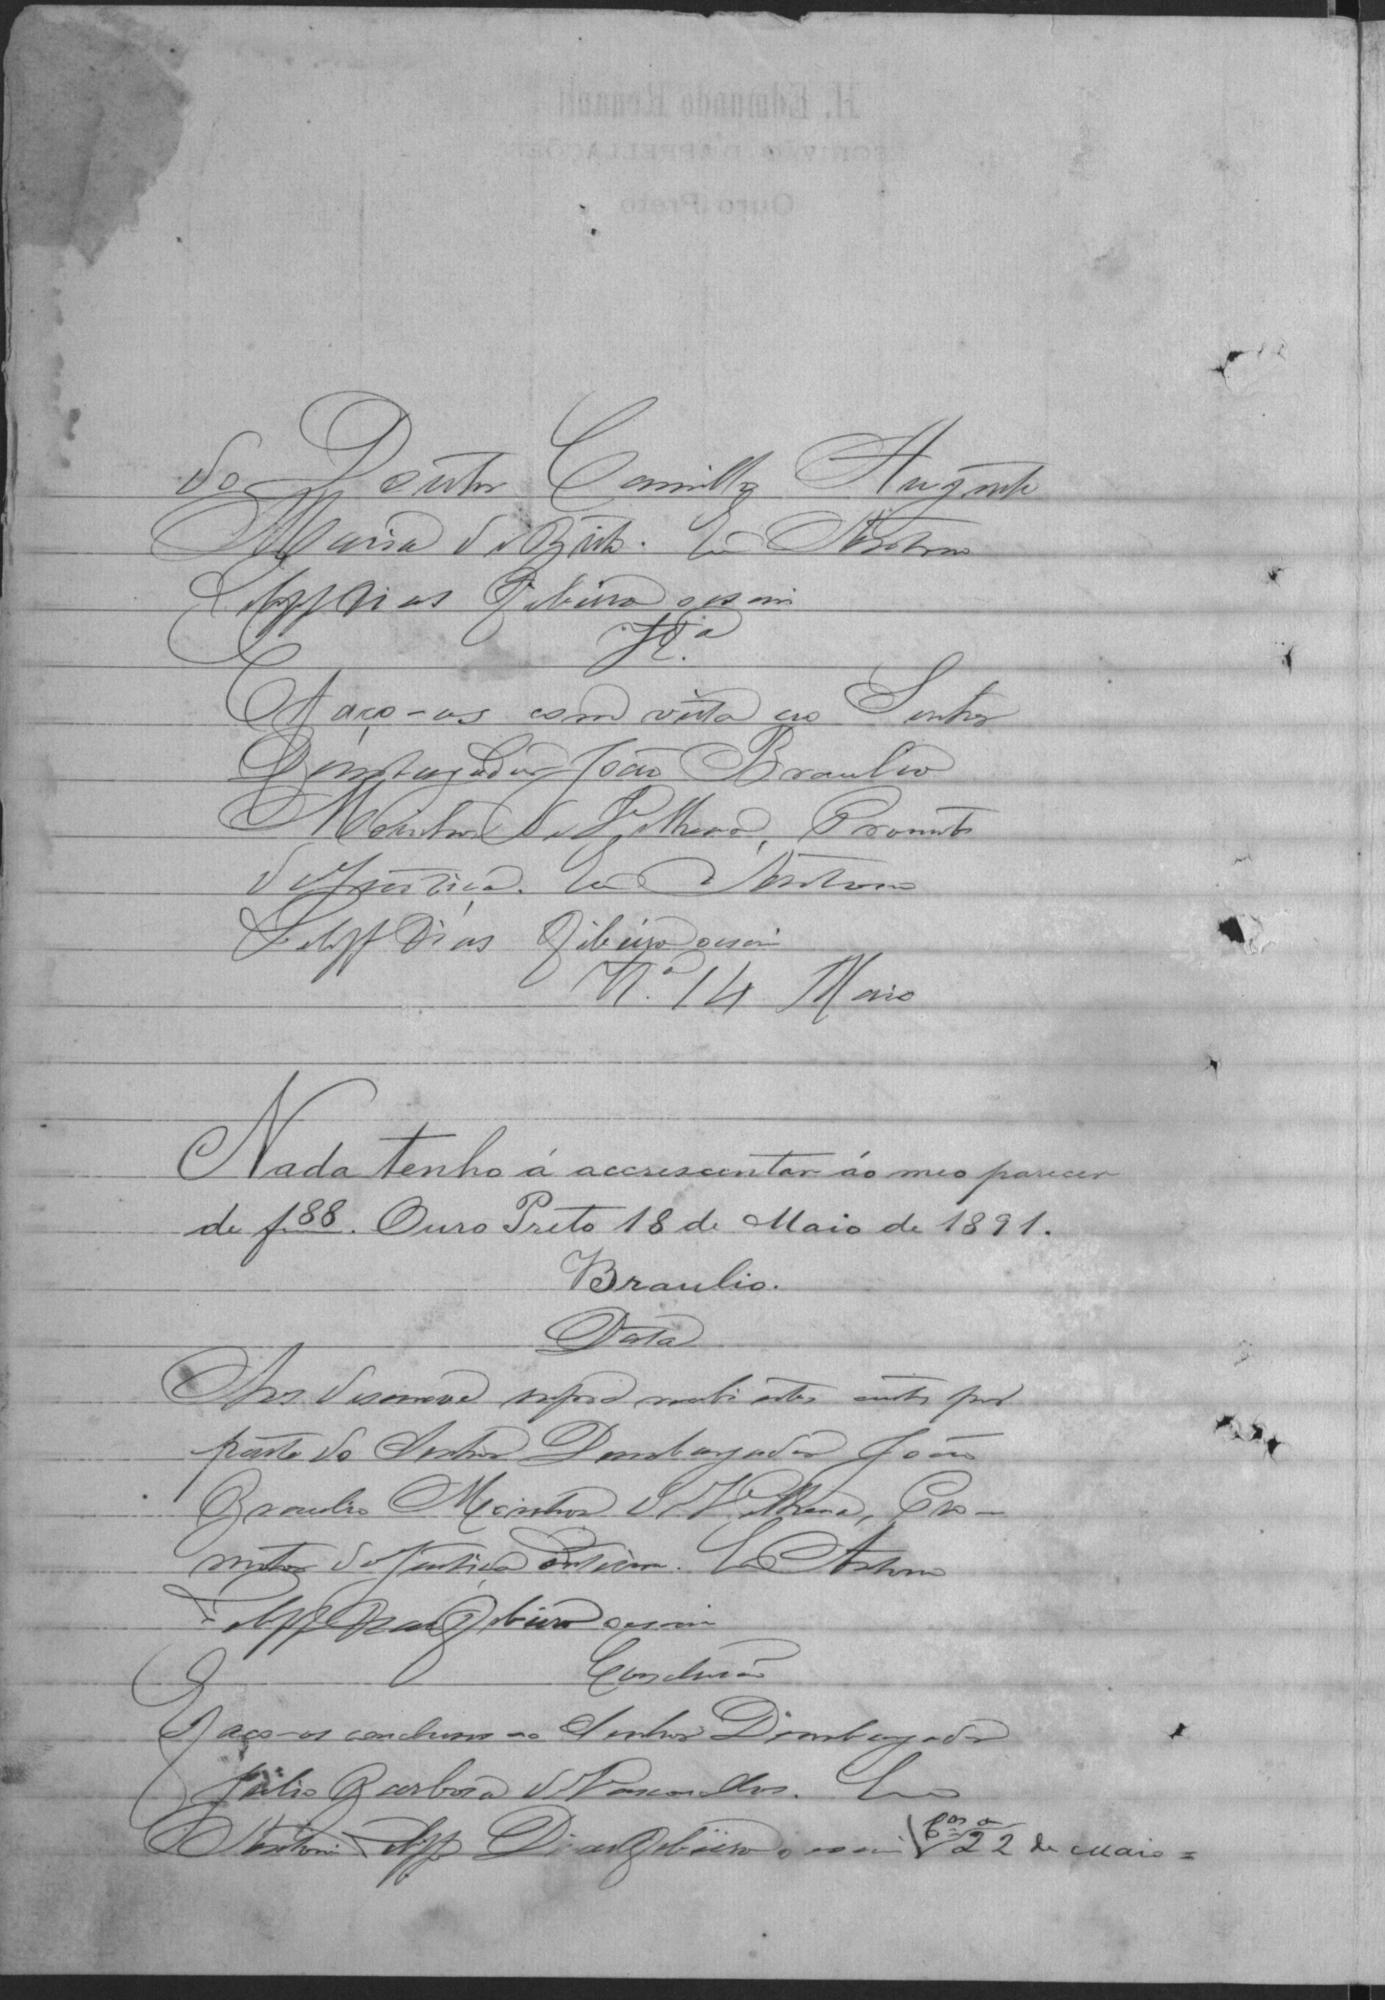 do Doutor Camillo Augusto
Maria de Brito. Eu Antonio
Felippe Dias Ribeiro o escrevi
V.ta
Faço-os com vista ao Senhor
Desembargador João Braulio
Moinhos de Vilhena, Promotor
de Justiça. Eu Antonio
Felippe Dias Ribeiro o escrevi
V.a 14 Maio
Nada tenho á accrescentar áo meo parecer
de f. 88. Ouro Preto 18 de Maio de 1891.
Braulio.
Data
Aos desenove supra recebi estes autos por
parte do Senhor Desembargador João
Braulio Moinhos de Vilhena, Pro-
motor de Justiça. Eu Antonio
Felippe Dias Ribeiro o escrevi
Conclusão
Faço-os conclusos ao Senhor Desembargador
Julio Barbosa de Vasconcellos. Eu
Antonio Felippe Dias Ribeiro o escrevi 22 de Maio =